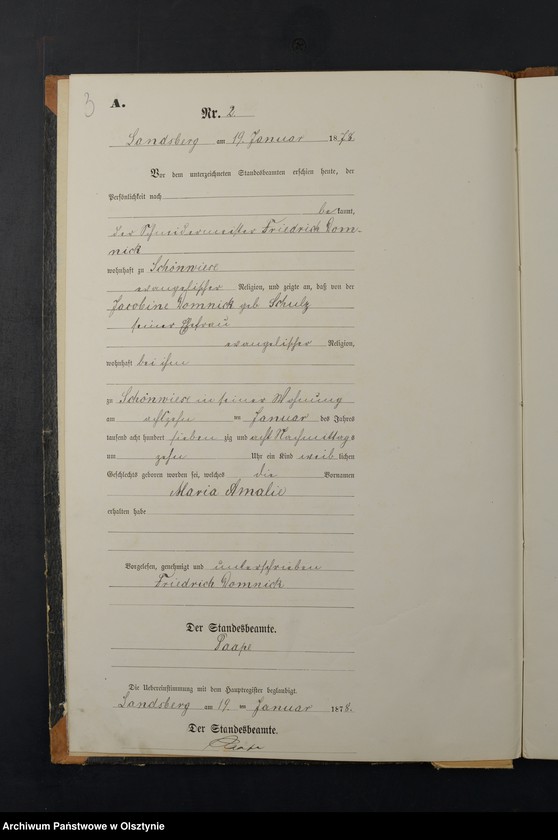 3
A.
Nr. 2
Landsberg am 19. Januar 1878
Vor dem unterzeichneten Standesbeamten erschien heute, der
Persönlichkeit nach
bekannt,
der Schneidermeister Friedrich Dom-
nick
wohnhaft zu Schönwiese
evangelischer Religion, und zeigte an, daß von der
Jacobine Domnick geb Schulz
seiner Ehefrau
evangelischer Religion,
wohnhaft bei ihm
zu Schönwiese in seiner Wohnung
am achtzehn ten Januar des Jahres
tausend acht hundert sieben zig und acht Nachmittags
um zehn Uhr ein Kind weib lichen
Geschlechts geboren worden sei, welches die Vornamen
Maria Amalie
erhalten habe
Vorgelesen, genehmigt und unterschrieben
Friedrich Domnick
Der Standesbeamte.
Paape
Die Uebereinstimmung mit dem Hauptregister beglaubigt.
Landsberg am 19. ten Januar 1878.
Der Standesbeamte.
Paape
Archiwum Państwowe w Olsztynie